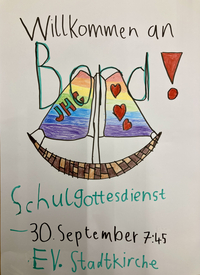 Willkommen an
Bord!
JHG
Schulgottesdienst
– 30. September 7:45
EV. Stadtkirche